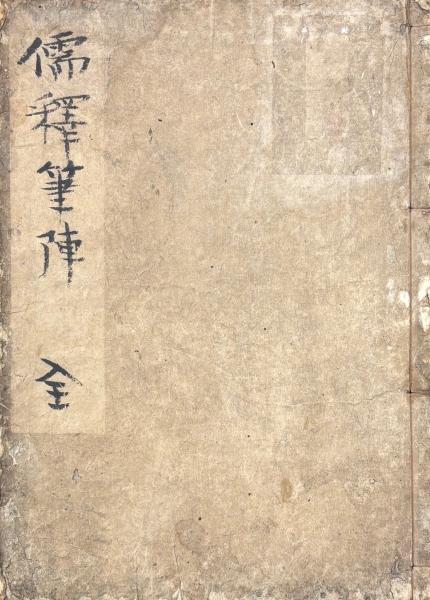 儒釋筆陣 全